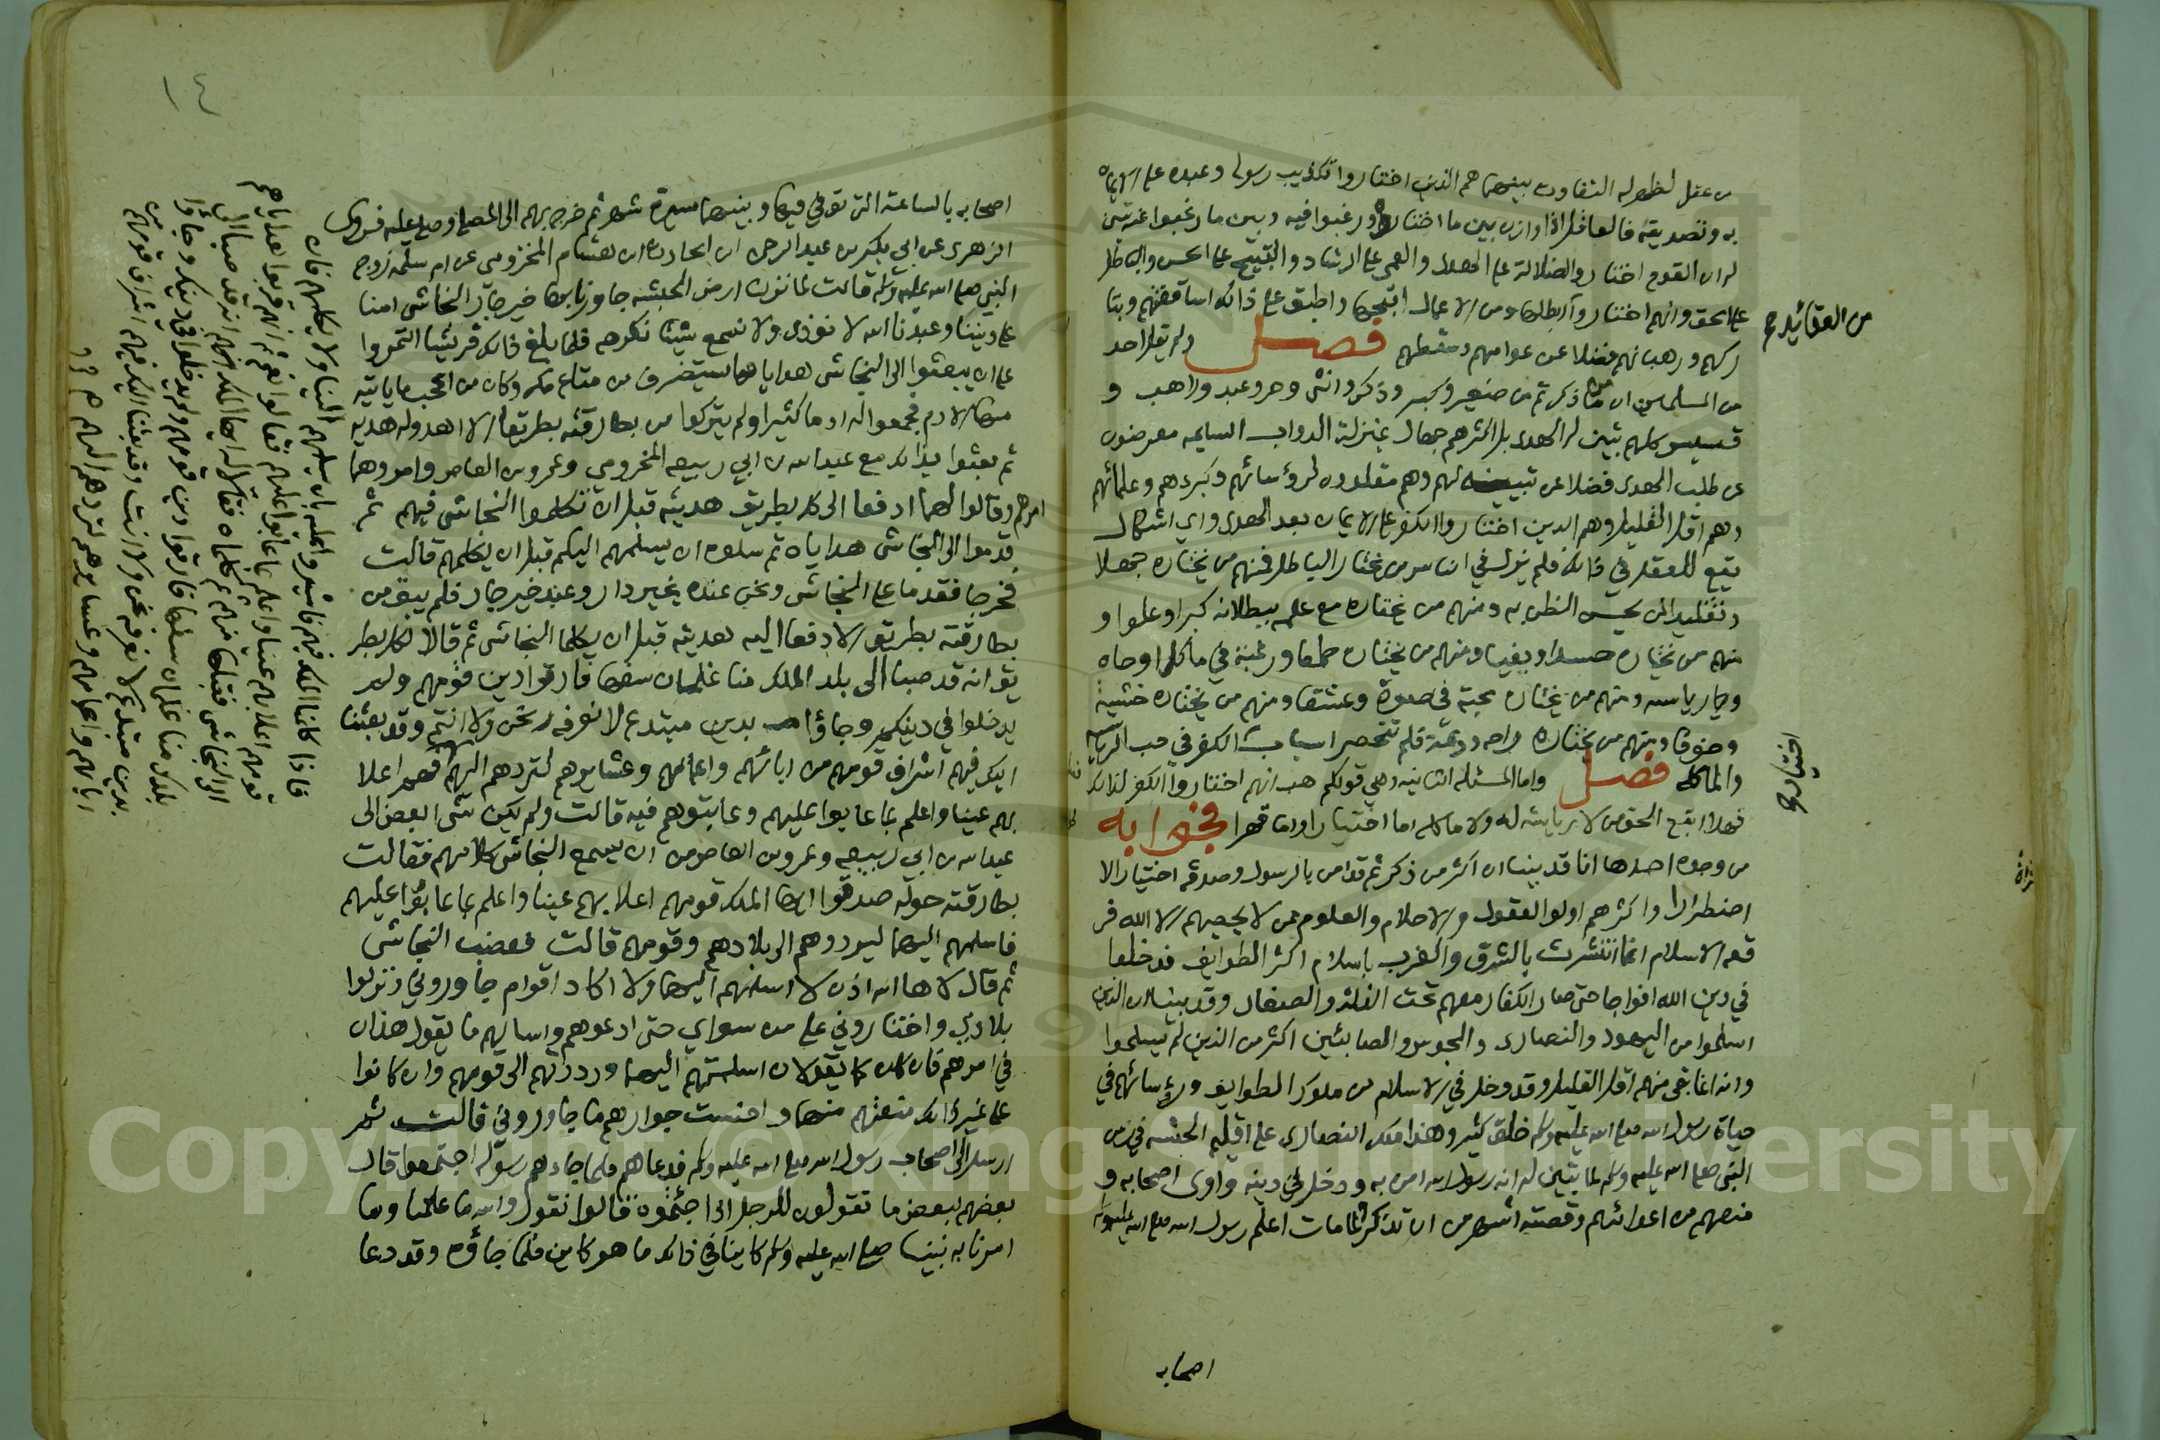 من عقل لظهر له التفاوت بينهما هم الذين اختاروا تكذيب رسوله وعبده على الايمان
به وتصديقه فالعاقل اذا وازن بين ما اختاروه ورغبوا فيه وبين ما رغبوا عنه تبين
له ان القوم اختاروا الضلالة على الهدى والعمى على الرشاد والقبيح على الحسن والباطل
على الحق وانهم اختاروا من العقائد ابطلها ومن الاعمال اقبحها واطبق على ذلك اساقفتهم وبتا
ركهم ورهبانهم فضلا عن عوامهم وسقطهم فصل ولم يقل احد
من المسلمين ان من ذكرتم من صغير وكبير وذكر وانثى وحر وعبد وراهب و
قسيس كلهم تبين له الهدى بل اكثرهم جهال بمنزلة الدواب السايمه معرضون
عن طلب الهدى فضلا عن تبينه لهم وهم مقلدون لرؤسائهم وكبرائهم وعلمائهم
وهم اقل القليل وهم الذين اختاروا الكفر على الايمان بعد الهدى واي اشكال
يقع للعقل في ذلك فلم يزل في الناس من يختار الباطل فمنهم من يختاره جهلا
وتقليدا لمن يحسن الظن به ومنهم من يختاره مع علمه ببطلانه كبرا وعلوا و
منهم من يختاره حسدا وبغيا ومنهم من يختاره طمعا ورغبة في ماكل او جاه
او رياسه ومنهم من يختاره محبة في صورة وعشقا ومنهم من يختاره خشية
وخوفا ومنهم من يختاره راحه ودعة فلم تنحصر اسباب الكفر في حب الرياسه
والماكله فصل واما المسئله الثانيه وهي قولكم هب انهم اختاروا الكفر لذلك
فهلا اتبع الحق من لا رياسه له ولا ماكله اما اختيارا واما قهرا فجوابه
من وجوه احدها انا قد بينا ان اكثر من ذكرتم قد امن بالرسول وصدقه اختيارا لا
اضطرارا واكثرهم اولوا العقول والاحلام والعلوم ممن لا يحصيهم الا الله فر
قعة الاسلام انما انتشرت بالشرق والغرب باسلام اكثر الطوايف فدخلوا
في دين الله افواجا حتى صار الكفار معهم تحت الذلة والصغار وقد بينا ان الذين
اسلموا من اليهود والنصارى والمجوس والصابئين اكثر من الذين لم يسلموا
وانه انما بقي منهم اقل القليل وقد دخل في الاسلام من ملوك الطوايف ورؤسائهم في
حياة رسول الله صلى الله عليه وسلم خلق كثير وهذا ملك النصارى على اقليم الحبشه في زمن
النبي صلى الله عليه وسلم لما تبين له انه رسول الله امن به ودخل في دينه واوى اصحابه و
منعهم من اعدائهم وقصته اشهر من ان تذكر ولما مات اعلم رسول الله صلى الله عليه وسلم
اصحابه
من العقائد صح
اختياري
١٤
اصحابه بالساعة التي توفي فيها وبينهما مسيرة شهر ثم خرج بهم الى المصلى وصلى عليه فروى
الزهري عن ابي بكر بن عبد الرحمن ابن الحارث ابن هشام المخزومي عن ام سلمه زوج
النبي صلى الله عليه وسلم قالت لما نزلنا ارض الحبشه جاورنا بها خير جار النجاشي امنا
على ديننا وعبدنا الله لا نوذى ولا نسمع شيئا نكرهه فلما بلغ ذلك قريشا ائتمروا
على ان يبعثوا الى النجاشي هدايا مما يستطرف من متاع مكه وكان من اعجب ما ياتيه
منها الادم فجمعوا له ادما كثيرا ولم يتركوا من بطارقته بطريقا الا اهدوا له هديه
ثم بعثوا بذلك مع عبد الله بن ابي ربيعه المخزومي وعمرو بن العاص وامروهما
امرهم وقالوا لهما ادفعا الى كل بطريق هديته قبل ان تكلموا النجاشي فيهم ثم
قدموا الى النجاشي هداياه ثم سلوه ان يسلمهم اليكم قبل ان يكلمهم قالت
فخرجا فقدما على النجاشي ونحن عنده بخير دار وعند خير جار فلم يبق من
بطارقته بطريق الا دفعا اليه هديته قبل ان يكلما النجاشي ثم قالا لكل بطر
يق انه قد صبا الى بلد الملك منا غلمان سفها فارقوا دين قومهم ولم
يدخلوا في دينكم وجاؤا بدين مبتدع لا نعرفه نحن ولا انتم وقد بعثنا
اليك فيهم اشراف قومهم من ابائهم واعمامهم وعشايرهم لتردهم اليهم فهم اعلا
بهم عينا واعلم بما عابوا عليهم وعاتبوهم فيه قالت ولم يكن شي ابغض الى
عبد الله بن ابي ربيعه وعمرو بن العاص من ان يسمع النجاشي كلامهم فقالت
بطارقته حوله صدقوا ايها الملك قومهم اعلا بهم عينا واعلم بما عابوا عليهم
فاسلمهم اليهما ليردوهم الى بلادهم وقومهم قالت فغضب النجاشي
ثم قال لا ها الله اذن لا اسلمهم اليهما ولا اكاد اقوام جاوروني ونزلوا
بلادي واختاروني على من سواي حتى ادعوهم واسالهم ما يقول هذان
في امرهم فان كان كما يقولان اسلمتهم اليهما ورددتهم الى قومهم وان كانوا
على غير ذلك منعتهم منهما واحسنت جوارهم ما جاوروني قالت ثم
ارسل الى اصحاب رسول الله صلى الله عليه وسلم فدعاهم فلما جاءهم رسوله اجتمعوا قال
بعضهم لبعض ما تقولون للرجل اذا جئتموه قالوا نقول والله ما علمنا وما
امرنا به نبينا صلى الله عليه وسلم كاينا في ذلك ما هو كاين فلما جاؤه وقد دعا
فاذا كلمنا الملك فيهم فاشيروا عليه بان يسلمهم الينا ولا يكلمهم فان
قومهم اعلا بهم عينا واعلم بما عابوا عليهم فقالوا نعم ثم انهم قربوا هداياهم
الى النجاشي فقبلها منهم ثم كلماه فقالا له ايها الملك انه قد صبا الى
بلدك منا غلمان سفها فارقوا دين قومهم ولم يدخلوا في دينك وجاؤا
بدين مبتدع لا نعرفه نحن ولا انت وقد بعثنا اليك فيهم اشراف قومهم من
ابايهم واعمامهم وعشايرهم لتردهم اليهم
Copyright © King Saud University